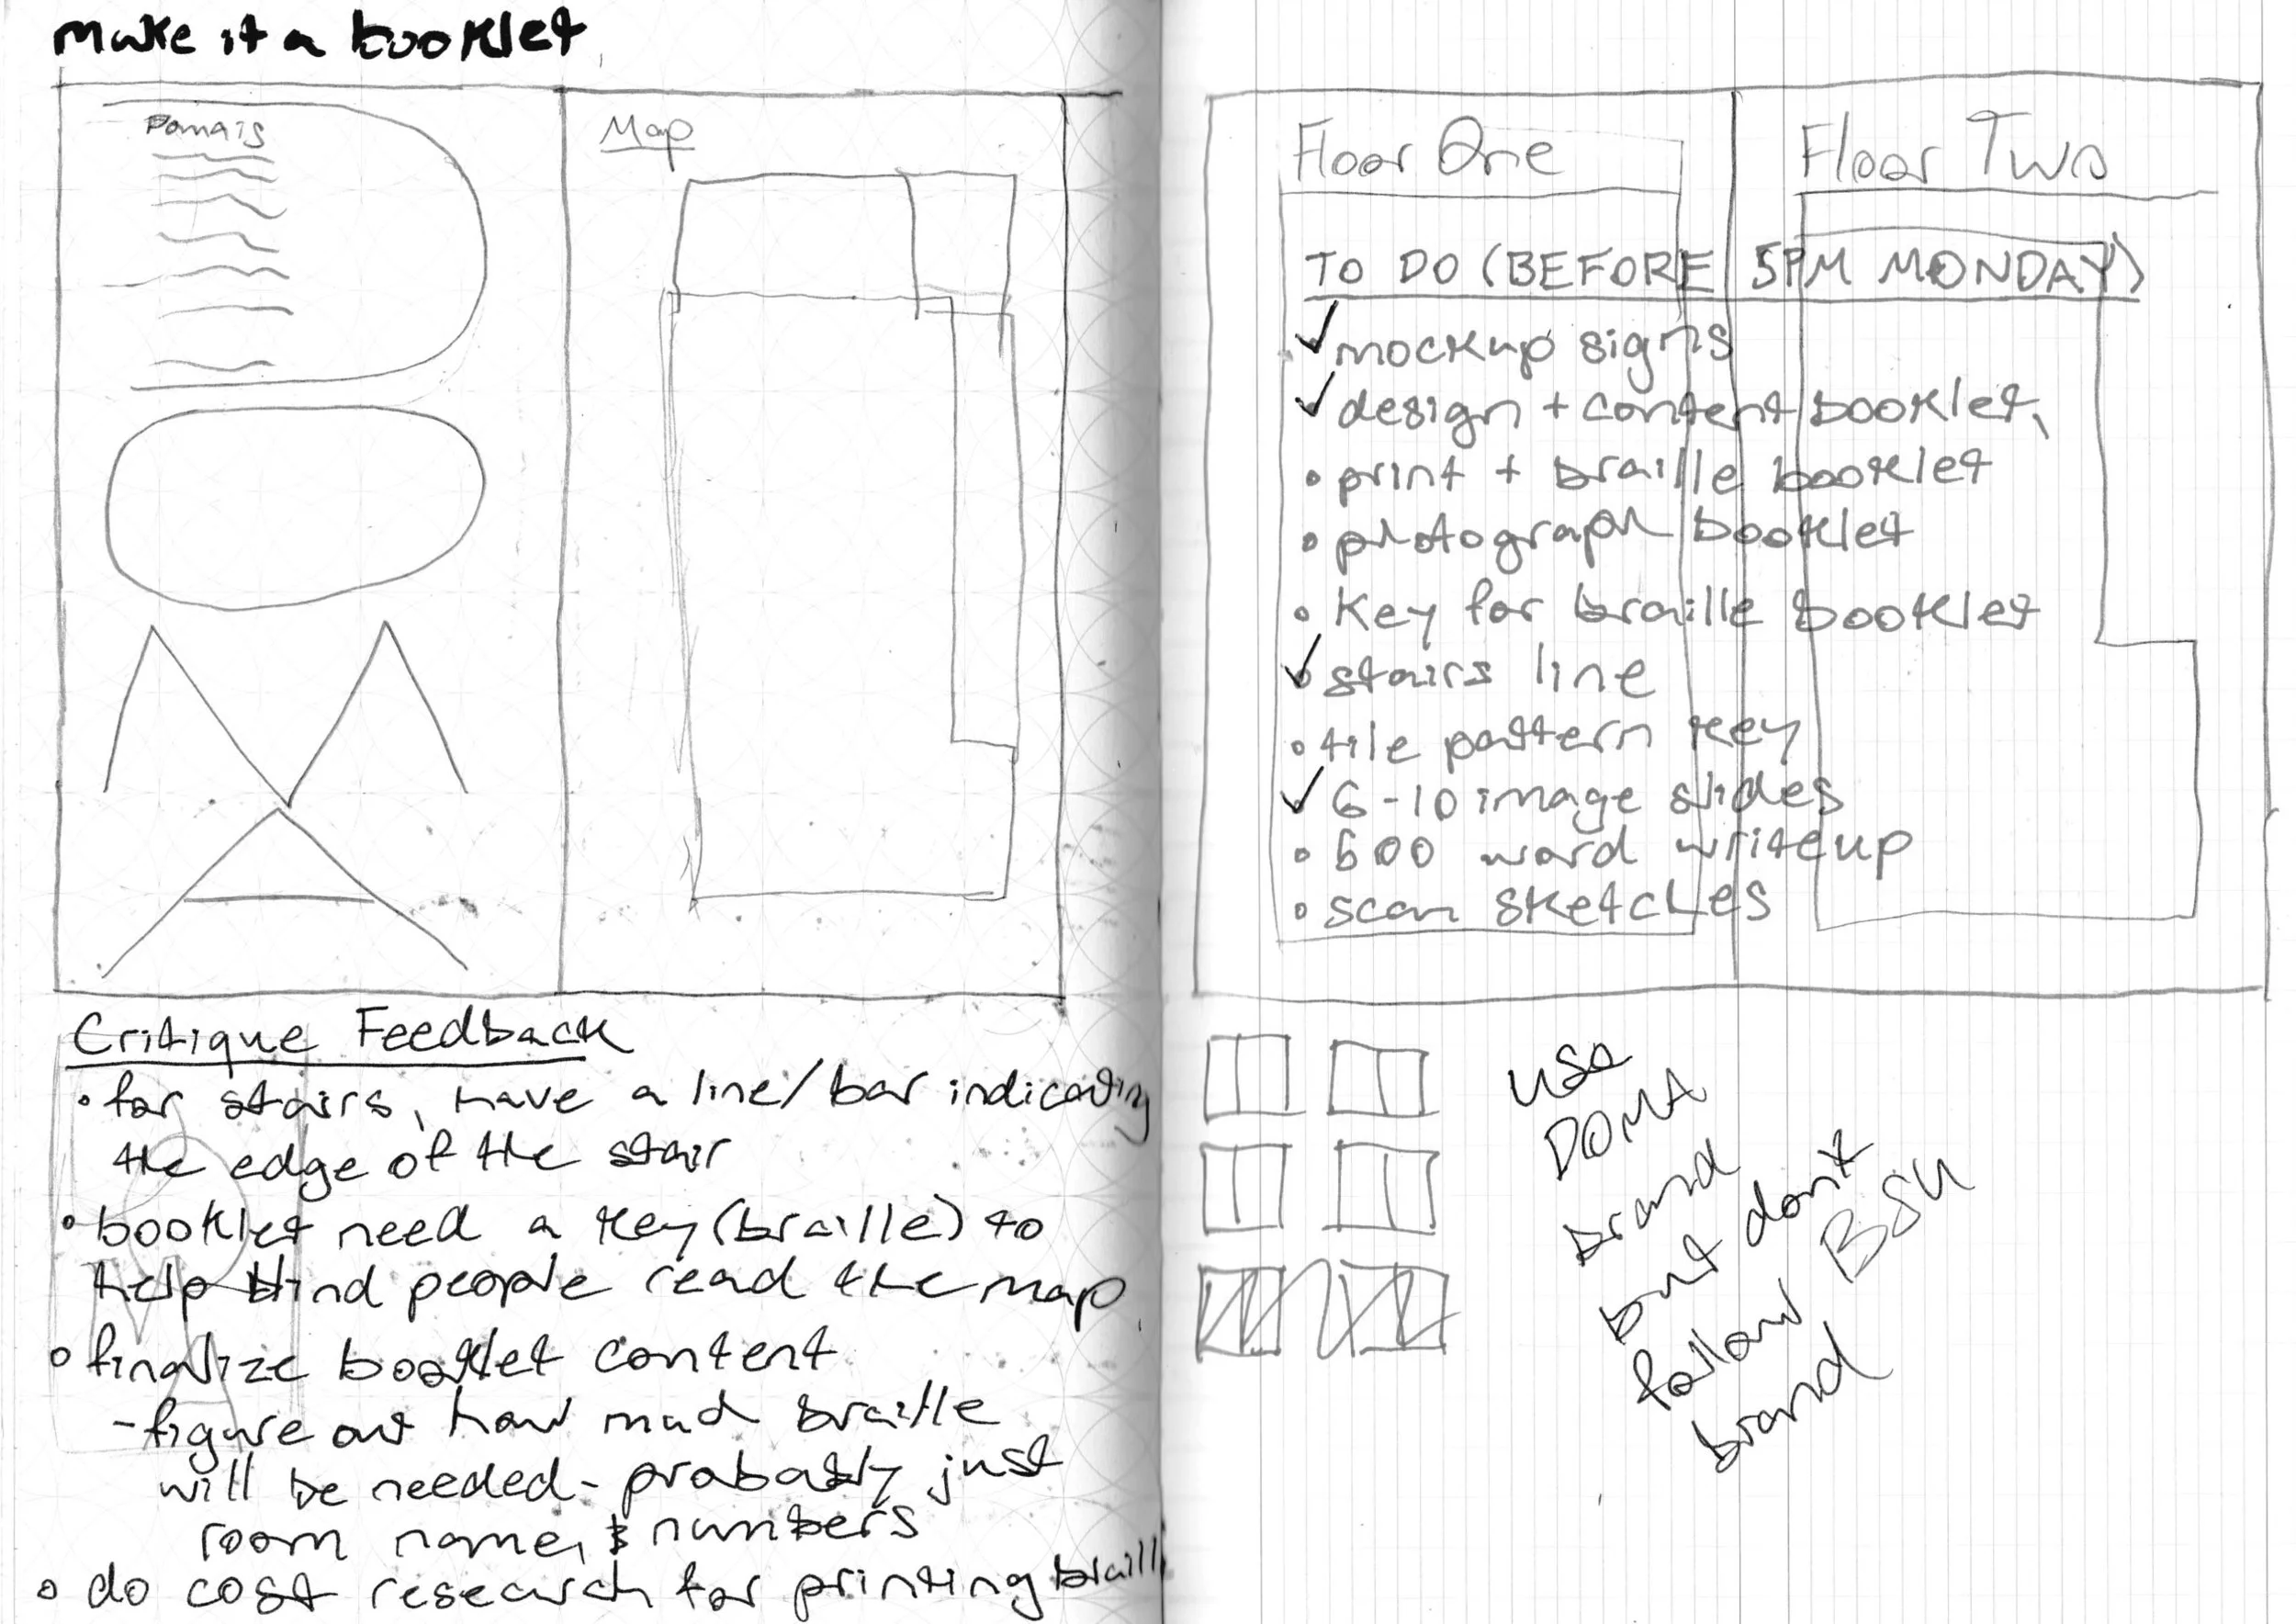 make it a booklet
Map
Critique Feedback
• for stairs, have a line/bar indicating
the edge of the stair
• booklet need a key (braille) to
help blind people read the map
• finalize booklet content
- figure out how much braille
will be needed - probably just
room name, & numbers
• do cost research for printing braille
Floor One
Floor Two
TO DO (BEFORE 5PM MONDAY)
✓ mockup signs
✓ design + content booklet,
• print + braille booklet
• photograph booklet
• key for braille booklet
✓ stairs line
• tile pattern key
✓ 6-10 image slides
• 600 word writeup
• scan sketches
use
DOMA
brand
but dont
follow BSU
brand